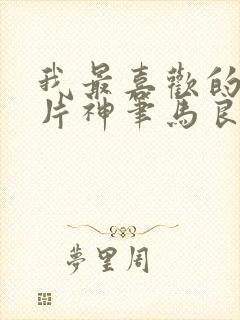 我最喜歡的
片神筆馬良
夢里周